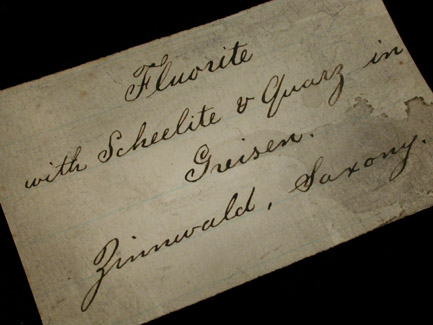 Fluorite
with Scheelite & Quarz in
Greisen.
Zinnwald, Saxony.